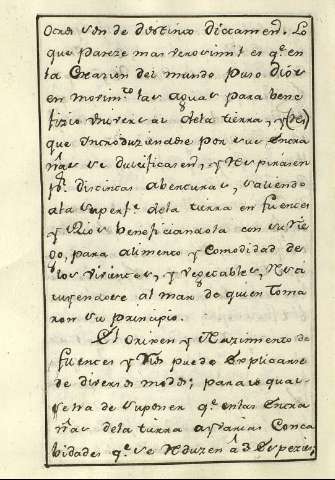 Otros son de distinto dictamen. Lo
que pareze mas verosimil es q.e en
la Creazion del mundo puso Dios
en movim.to las aguas para bene
fizio universal dela tierra, y
que introduziendose por sus entra
ñas se dulcificasen, y respirasen
p.r distintas aberturas, saliendo
ala superf.e dela tierra en fuentes
y Rios beneficiandola con su rie
go, para alimento y Comodidad de
los vivientes, y vegetables, resti
tuyendose al mar de quien toma
ron su principio.
El orixen y Nazimiento de
fuentes y Rios puede explicarse
de diversos modos; para lo qual
se ha de suponer q.e en las entra
ñas dela tierra a varias Conca
bidades q.e se reduzen â 3 espezies